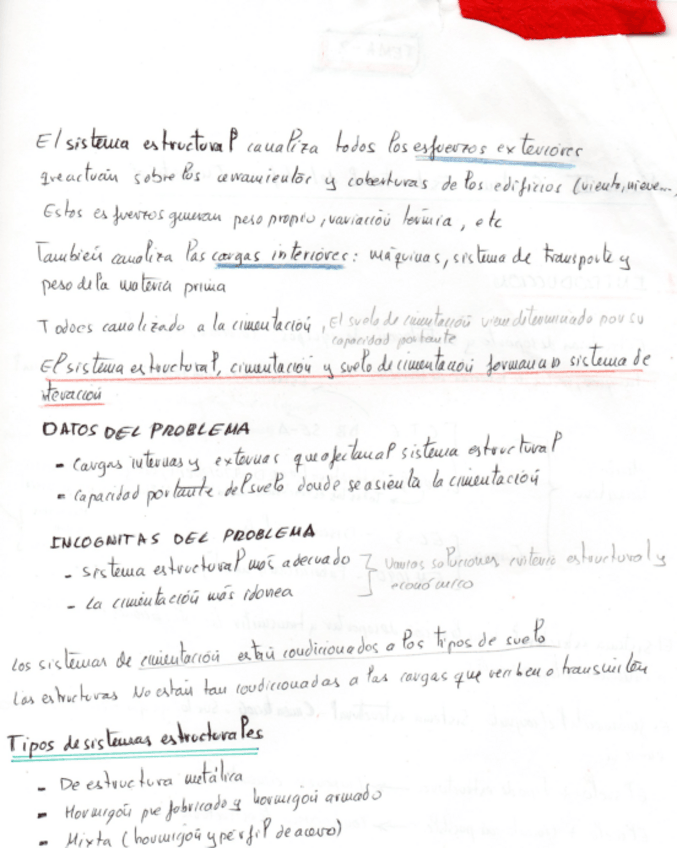 El sistema estructural canaliza todos los esfuerzos exteriores
que actuán sobre los cerramientos y coberturas de los edificios (viento, nieve...
Estos esfuerzos generan peso propio, variación termia, etc
También canaliza las cargas interiores: máquinas, sistema de transporte y
peso de la materia prima
Todo es canalizado a la cimentación, El suelo de cimentación viene determinado por su
capacidad portante
El sistema estructural, cimentación y suelo de cimentación forman un sistema de
iteracción
DATOS DEL PROBLEMA
- Cargas internas y externas que afectan al sistema estructural
- capacidad portante del suelo donde se asienta la cimentación
INCOGNITAS DEL PROBLEMA
- Sistema estructural más adecuado } Varias soluciones criterio estructural y
económico
- La cimentación más idonea
Los sistemas de cimentación están condicionados a los tipos de suelo
Las estructuras No están tan condicionadas a las cargas que reciben o transmiten
Tipos de sistemas estructurales
- De estructura metálica
- Hormigón prefabricado y hormigón armado
- Mixta (hormigón y perfil de acero)